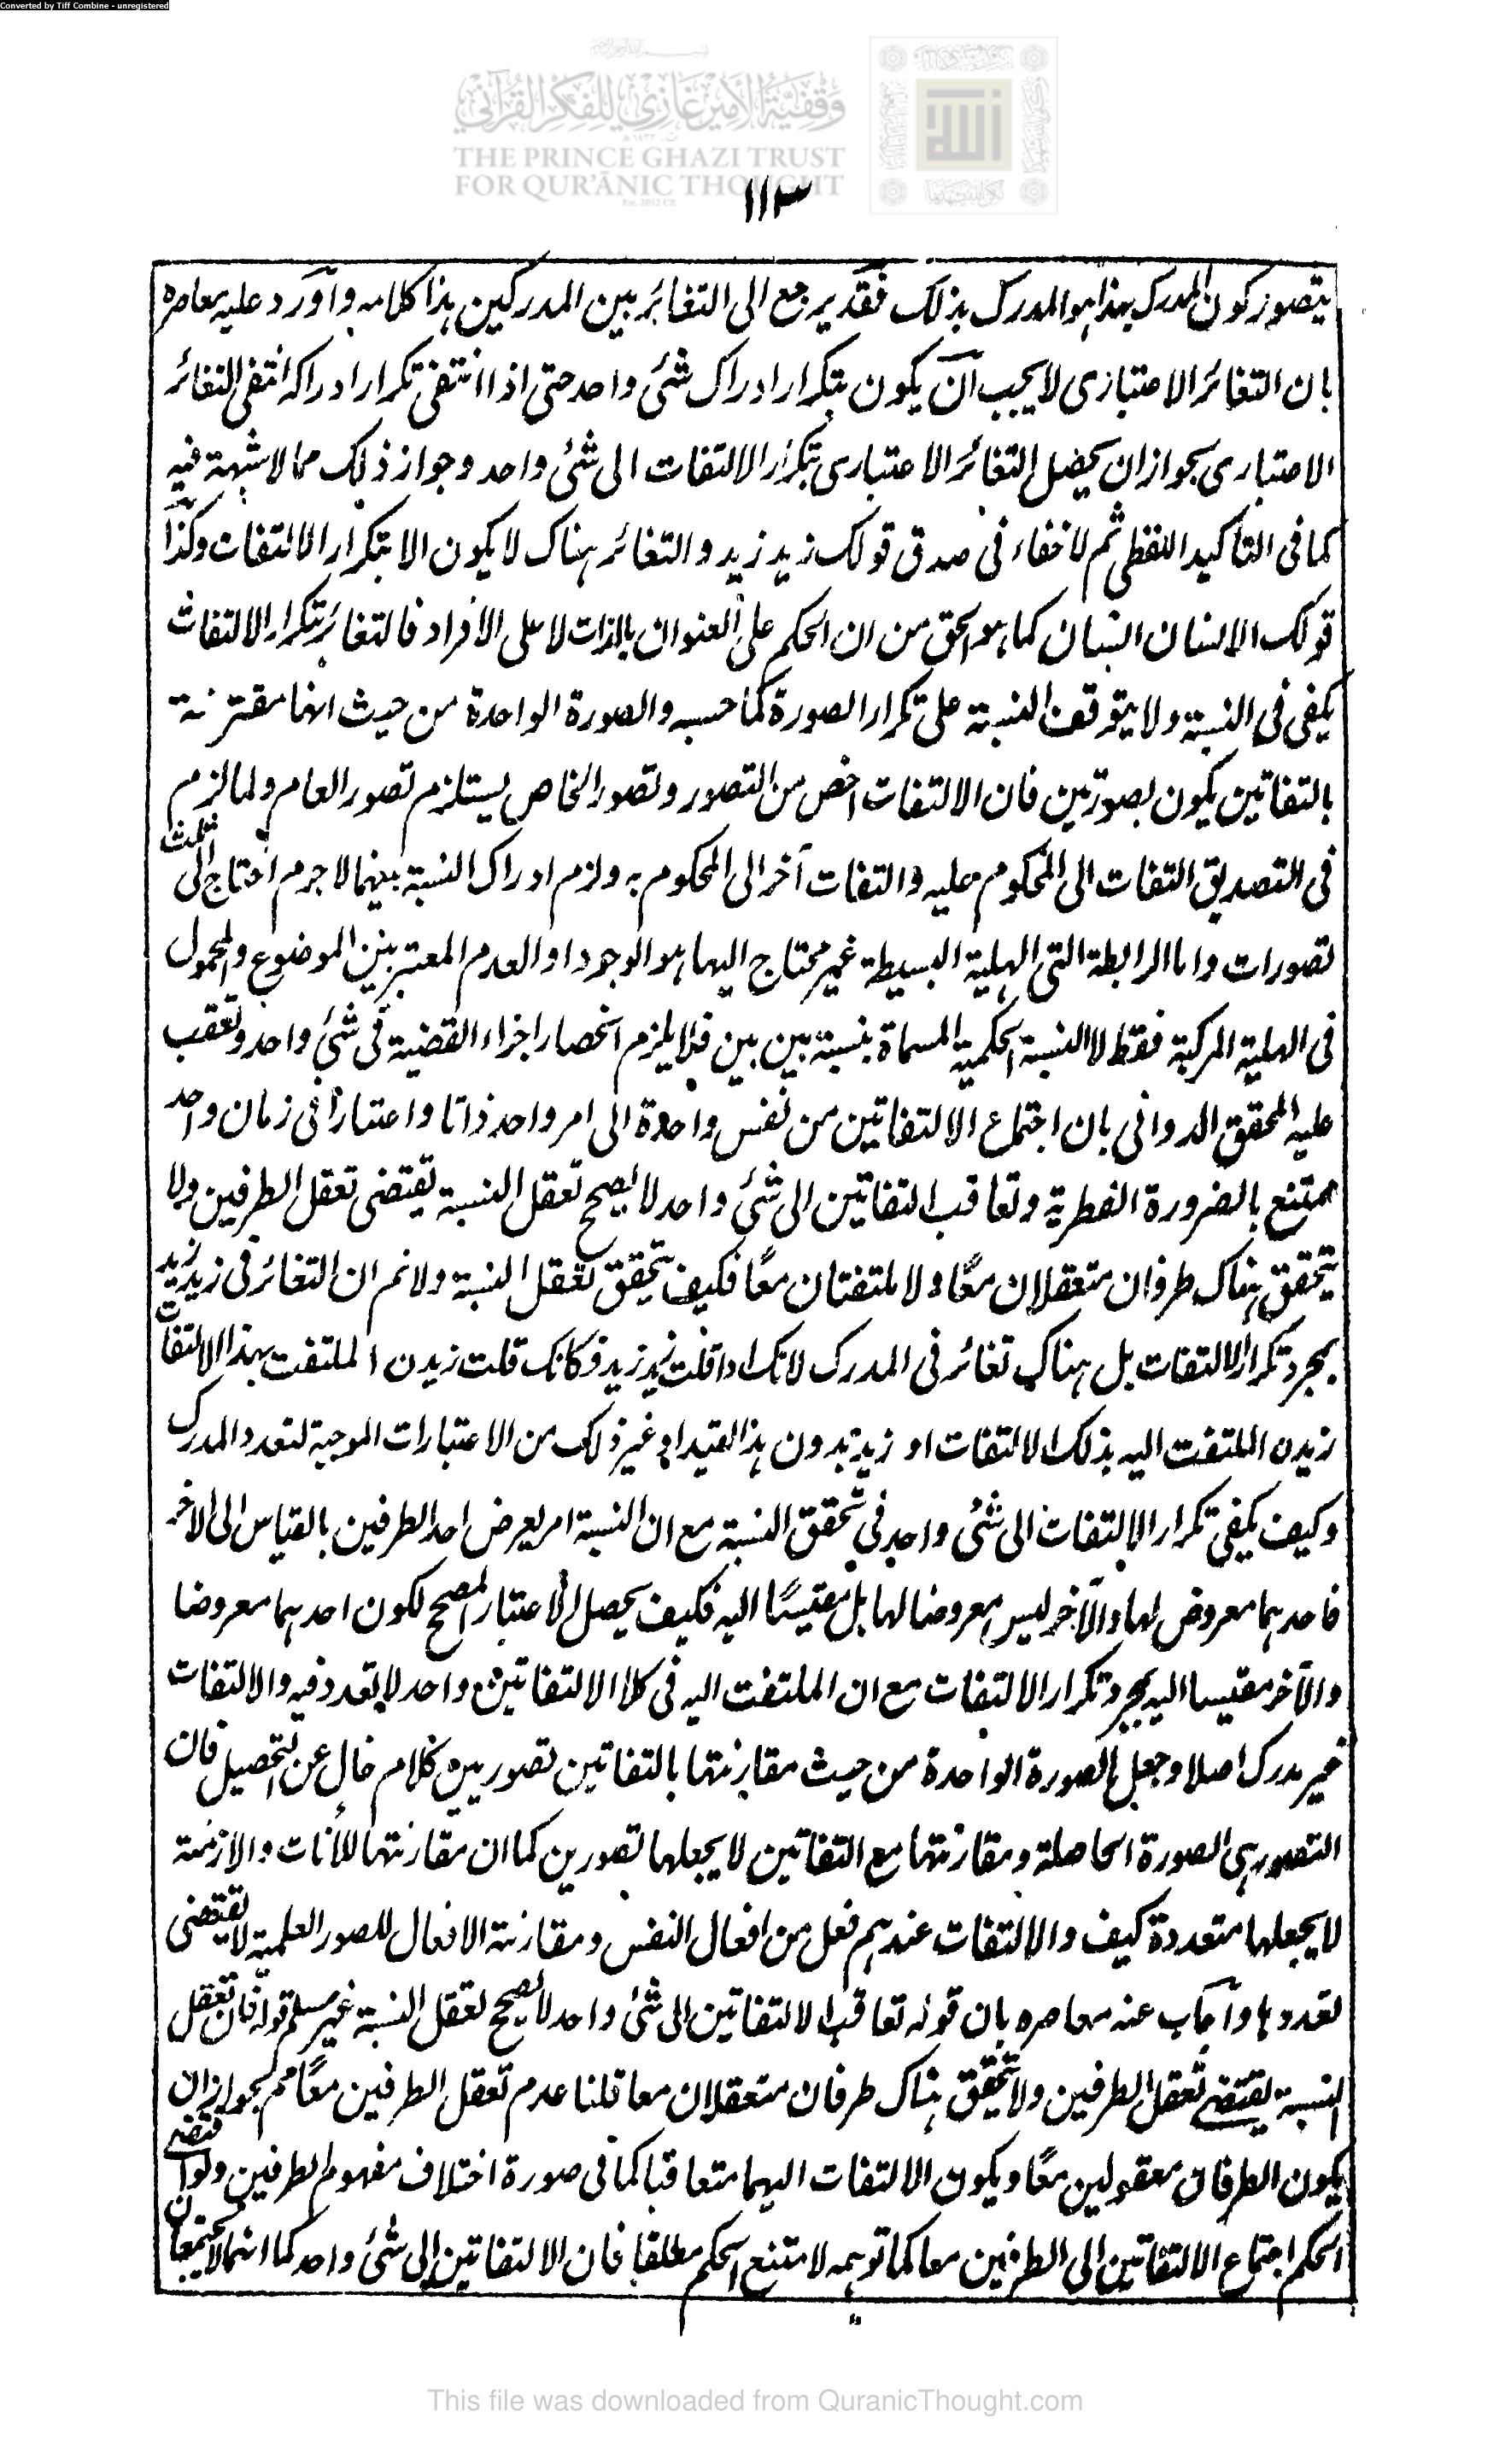 Converted by Tiff Combine - unregistered
وقفية الأمير غازي للفكر القرآني
THE PRINCE GHAZI TRUST
FOR QUR'ĀNIC THOUGHT
١١٣
يتصور كون المدرك بهذا هو المدرك بذلك فقد يرجع الى التغائر بين المدركين هذا كلامه وآورد عليه معاصره
بان التغائر الاعتباری لا يجب آن يكون بتكرار ادراك شئ واحد حتى اذا انتفى تكرار ادراكه انتفى التغائر
الاعتباری بجواز ان يحصل التغائر الاعتباری بتكرار الالتفات الى شئ واحد وجواز ذلك مما لا شبهة فيه
كما فى التاكيد اللفظی ثم لا خفاء فى صدق قولك زيد زيد والتغائر هناك لا يكون الا بتكرار الالتفات وكذا
قولك الانسان انسان كما هو الحق من ان الحكم على العنوان بالذات لا على الافراد فالتغائر بتكرار الالتفات
يكفى فى النسبة ولا يتوقف النسبة على تكرار الصورة كما حسبه والصورة الواحدة من حيث انها مقترنة
بالتفاتين يكون بصورتين فان الالتفات اخص من التصور وتصور الخاص يستلزم تصور العام ولما لزم
فى التصديق التفات الى المحكوم عليه والتفات آخر الى المحكوم به ولزم ادراك النسبة بينهما لا جرم احتاج الى ثلث
تصورات واما الرابطة التی الهلية البسيطة غير محتاج اليها هو الوجود او العدم المعتبر بين الموضوع والمحمول
فى الهلية المركبة فقط لا النسبة الحكمية المسماة بنسبة بين بين فلا يلزم انحصار اجزاء القضية فى شئ واحد وتعقب
عليه المحقق الدوانی بان اجتماع الالتفاتين من نفس واحدة الى امر واحد ذاتا واعتبارا فى زمان واحد
ممتنع بالضرورة الفطرية وتعاقب التفاتين الى شئ واحد لا يصح تعقل النسبة تقتضى تعقل الطرفين ولا
يتحقق هناك طرفان متعقلان معًا ولا ملتفتان معًا فكيف يتحقق تعقل النسبة ولا نم ان التغائر فى زيد زيد
بمجرد تكرار الالتفات بل هناك تغائر فى المدرك لانك اذا قلت زيد زيد فكانك قلت زيدن الملتفت بهذا الالتفات
زيدن الملتفت اليه بذلك الالتفات او زيد بدون هذا القيد او غير ذلك من الاعتبارات الموجبة لتعدد المدرك
وكيف يكفى تكرار الالتفات الى شئ واحد فى تحقق النسبة مع ان النسبة امر يعرض احد الطرفين بالقياس الى الاخر
فاحدهما معروض لها والآخر ليس معروضا لها بل مقيسًا اليه فكيف يحصل الاعتبار المصحح لكون احدهما معروضا
والآخر مقيسا اليه بمجرد تكرار الالتفات مع ان الملتفت اليه فى كلا الالتفاتين واحد لا تعدد فيه والالتفات
غير مدرك اصلا وجعل الصورة الواحدة من حيث مقارنتها بالتفاتين تصورين كلام خال عن التحصيل فان
التصور هی الصورة الحاصلة ومقارنتها مع التفاتين لا يجعلها تصورين كما ان مقارنتها للأنات والازمنة
لا يجعلها متعددة كيف والالتفات عندهم فعل من افعال النفس ومقارنة الافعال للصور العلمية لا يقتضى
تعددها وآجاب عنه معاصره بان قوله تعاقب الالتفاتين الى شئ واحد لا يصح تعقل النسبة غير مسلم قوله فان تعقل
النسبة يقتضى تعقل الطرفين ولا يتحقق هناك طرفان متعقلان معا قلنا عدم تعقل الطرفين معًا مم لجواز ان
يكون الطرفان معقولين معًا ويكون الالتفات اليهما متعاقبا كما فى صورة اختلاف مفهوم الطرفين ولو اقتضى
الحكم اجتماع الالتفاتين الى الطرفين معا كما توهمه لامتنع الحكم مطلقا فان الالتفاتين الى شئ واحد كما انهما لا يجتمعان
This file was downloaded from QuranicThought.com